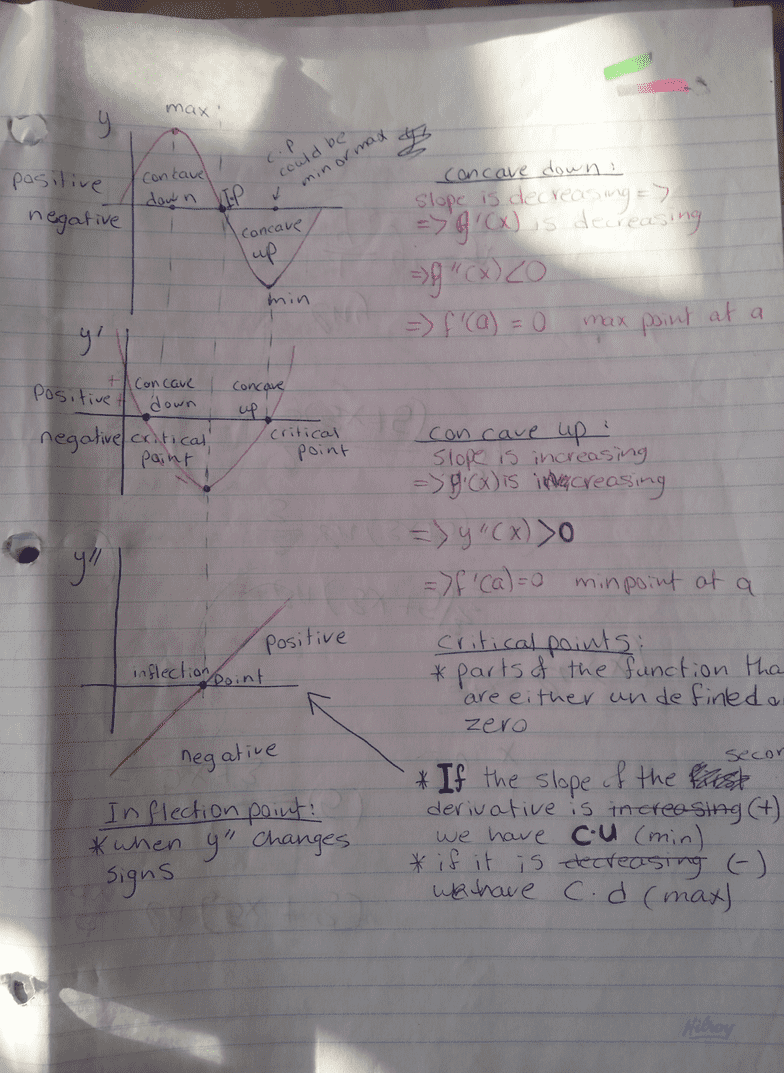 max
y
c.p
could be
min or max
positive
negative
concave
down
I.P
concave
up
min
y'
+
+
positive
negative
concave
down
concave
up
critical
point
critical
point
y"
inflection point
positive
negative
Inflection point:
*when y" changes
signs
concave down:
slope is decreasing =>
=> g'(x) is decreasing
=> g"(x) < 0
=> f'(a) = 0 max point at a
concave up:
slope is increasing
=> g'(x) is increasing
=> y"(x) > 0
=> f'(a) = 0 min point at a
critical points:
* parts of the function tha
are either undefined o
zero
secon
* If the slope of the first
derivative is increasing (+)
we have C.U (min)
* if it is decreasing (-)
we have C.d (max)
Hilroy